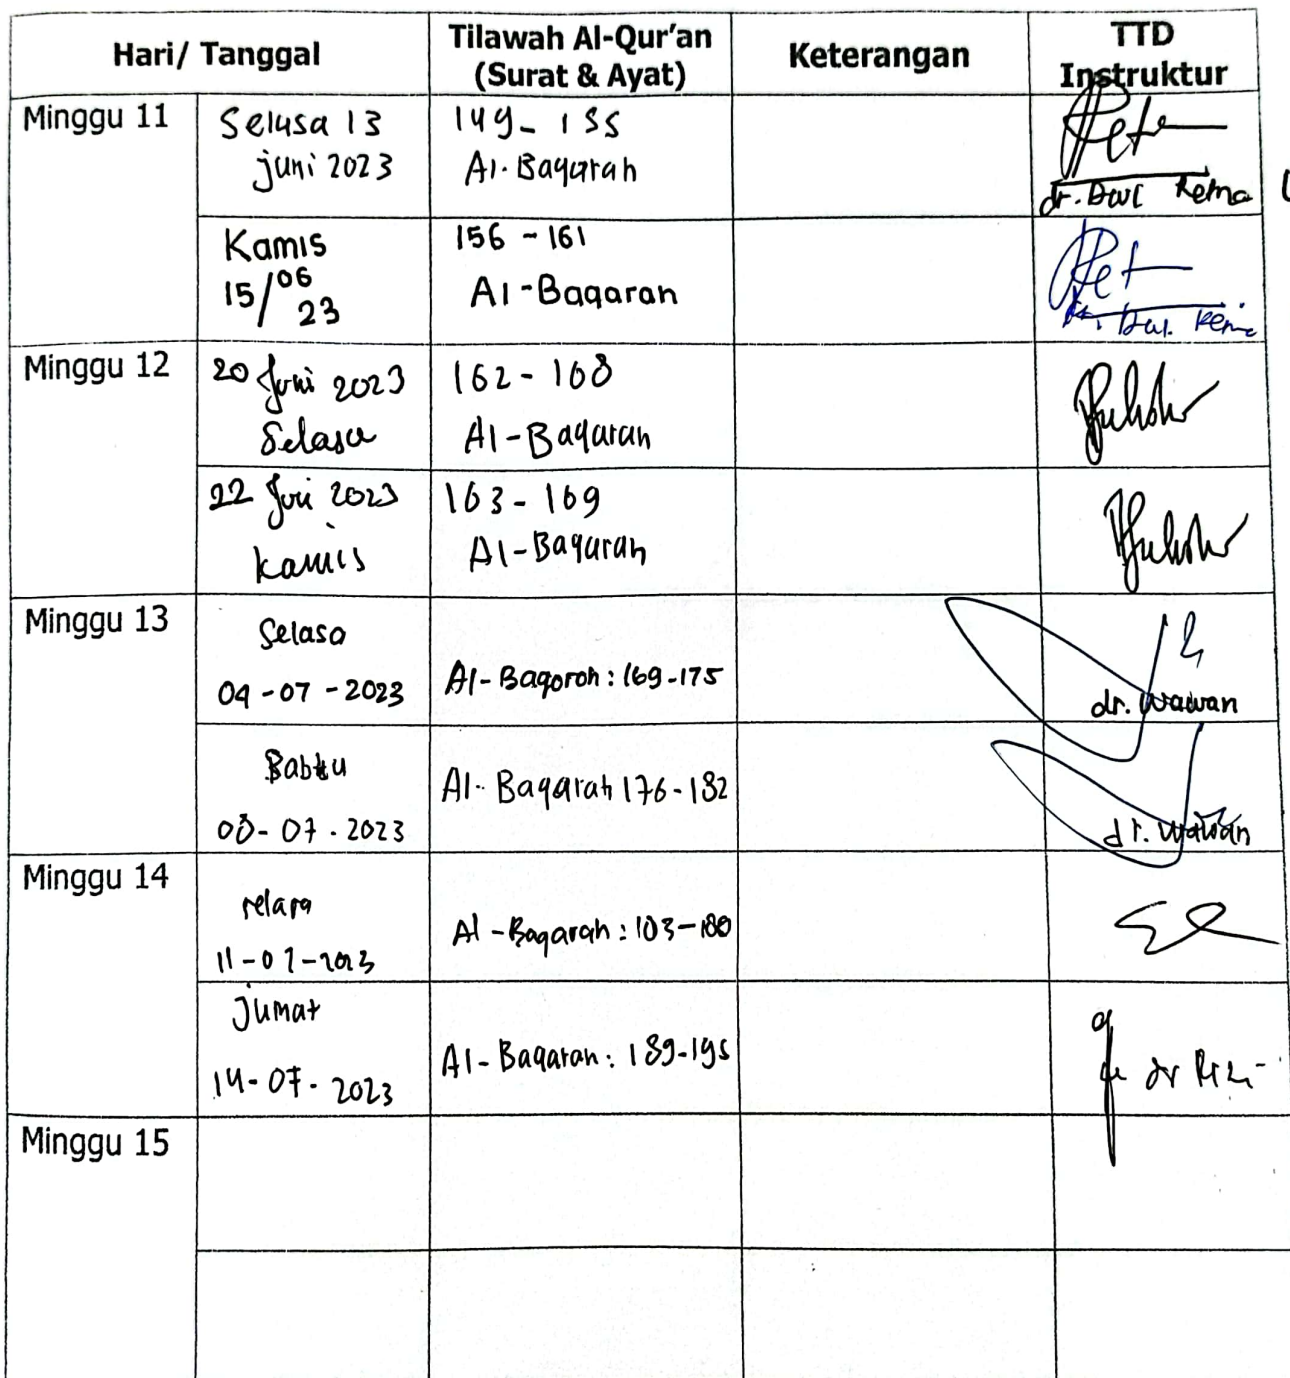 Hari/ Tanggal
Tilawah Al-Qur'an
(Surat & Ayat)
Keterangan
TTD
Instruktur
Minggu 11
Selasa 13
juni 2023
149- 155
Al-Baqarah
dr. Dwi
Kamis
15/06
23
156 - 161
Al-Baqarah
Minggu 12
20 Juni 2023
Selasa
162 - 168
Al-Baqarah
22 Juni 2023
kamis
163 - 169
Al-Baqarah
Minggu 13
Selasa
04-07-2023
Al-Baqoroh: 169-175
dr. Wawan
Sabtu
08-07-2023
Al-Baqarah 176-182
dr. Wawan
Minggu 14
selasa
11-07-2023
Al-Baqarah: 183-188
Jumat
14-07-2023
Al-Baqarah: 189-195
dr
Minggu 15